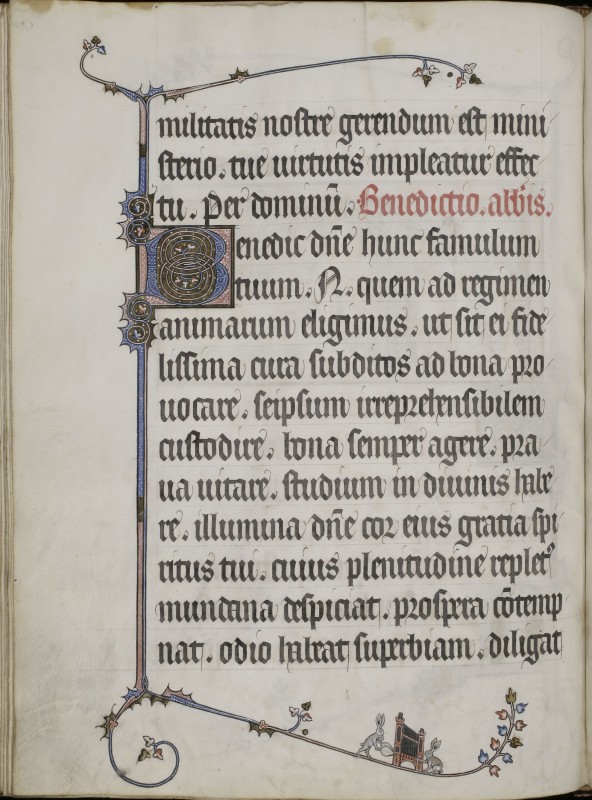 militatis nostre gerendum est mini
sterio. tue uirtutis impleatur effec
tu. Per dominū. Benedictio. abb̄is.
Benedic dn̄e hunc famulum
tuum. N. quem ad regimen
animarum eligimus. ut sit ei fide
lissima cura subditos ad bona pro
uocare. seipsum irreprehensibilem
custodire. bona semper agere. pra
ua uitare. studium in diuinis habe
re. illumina dn̄e cor eius gratia spi
ritus tui. cuius plenitudine replet᷒
mundana despiciat. prospera cōtemp
nat. odio habeat superbiam. diligat